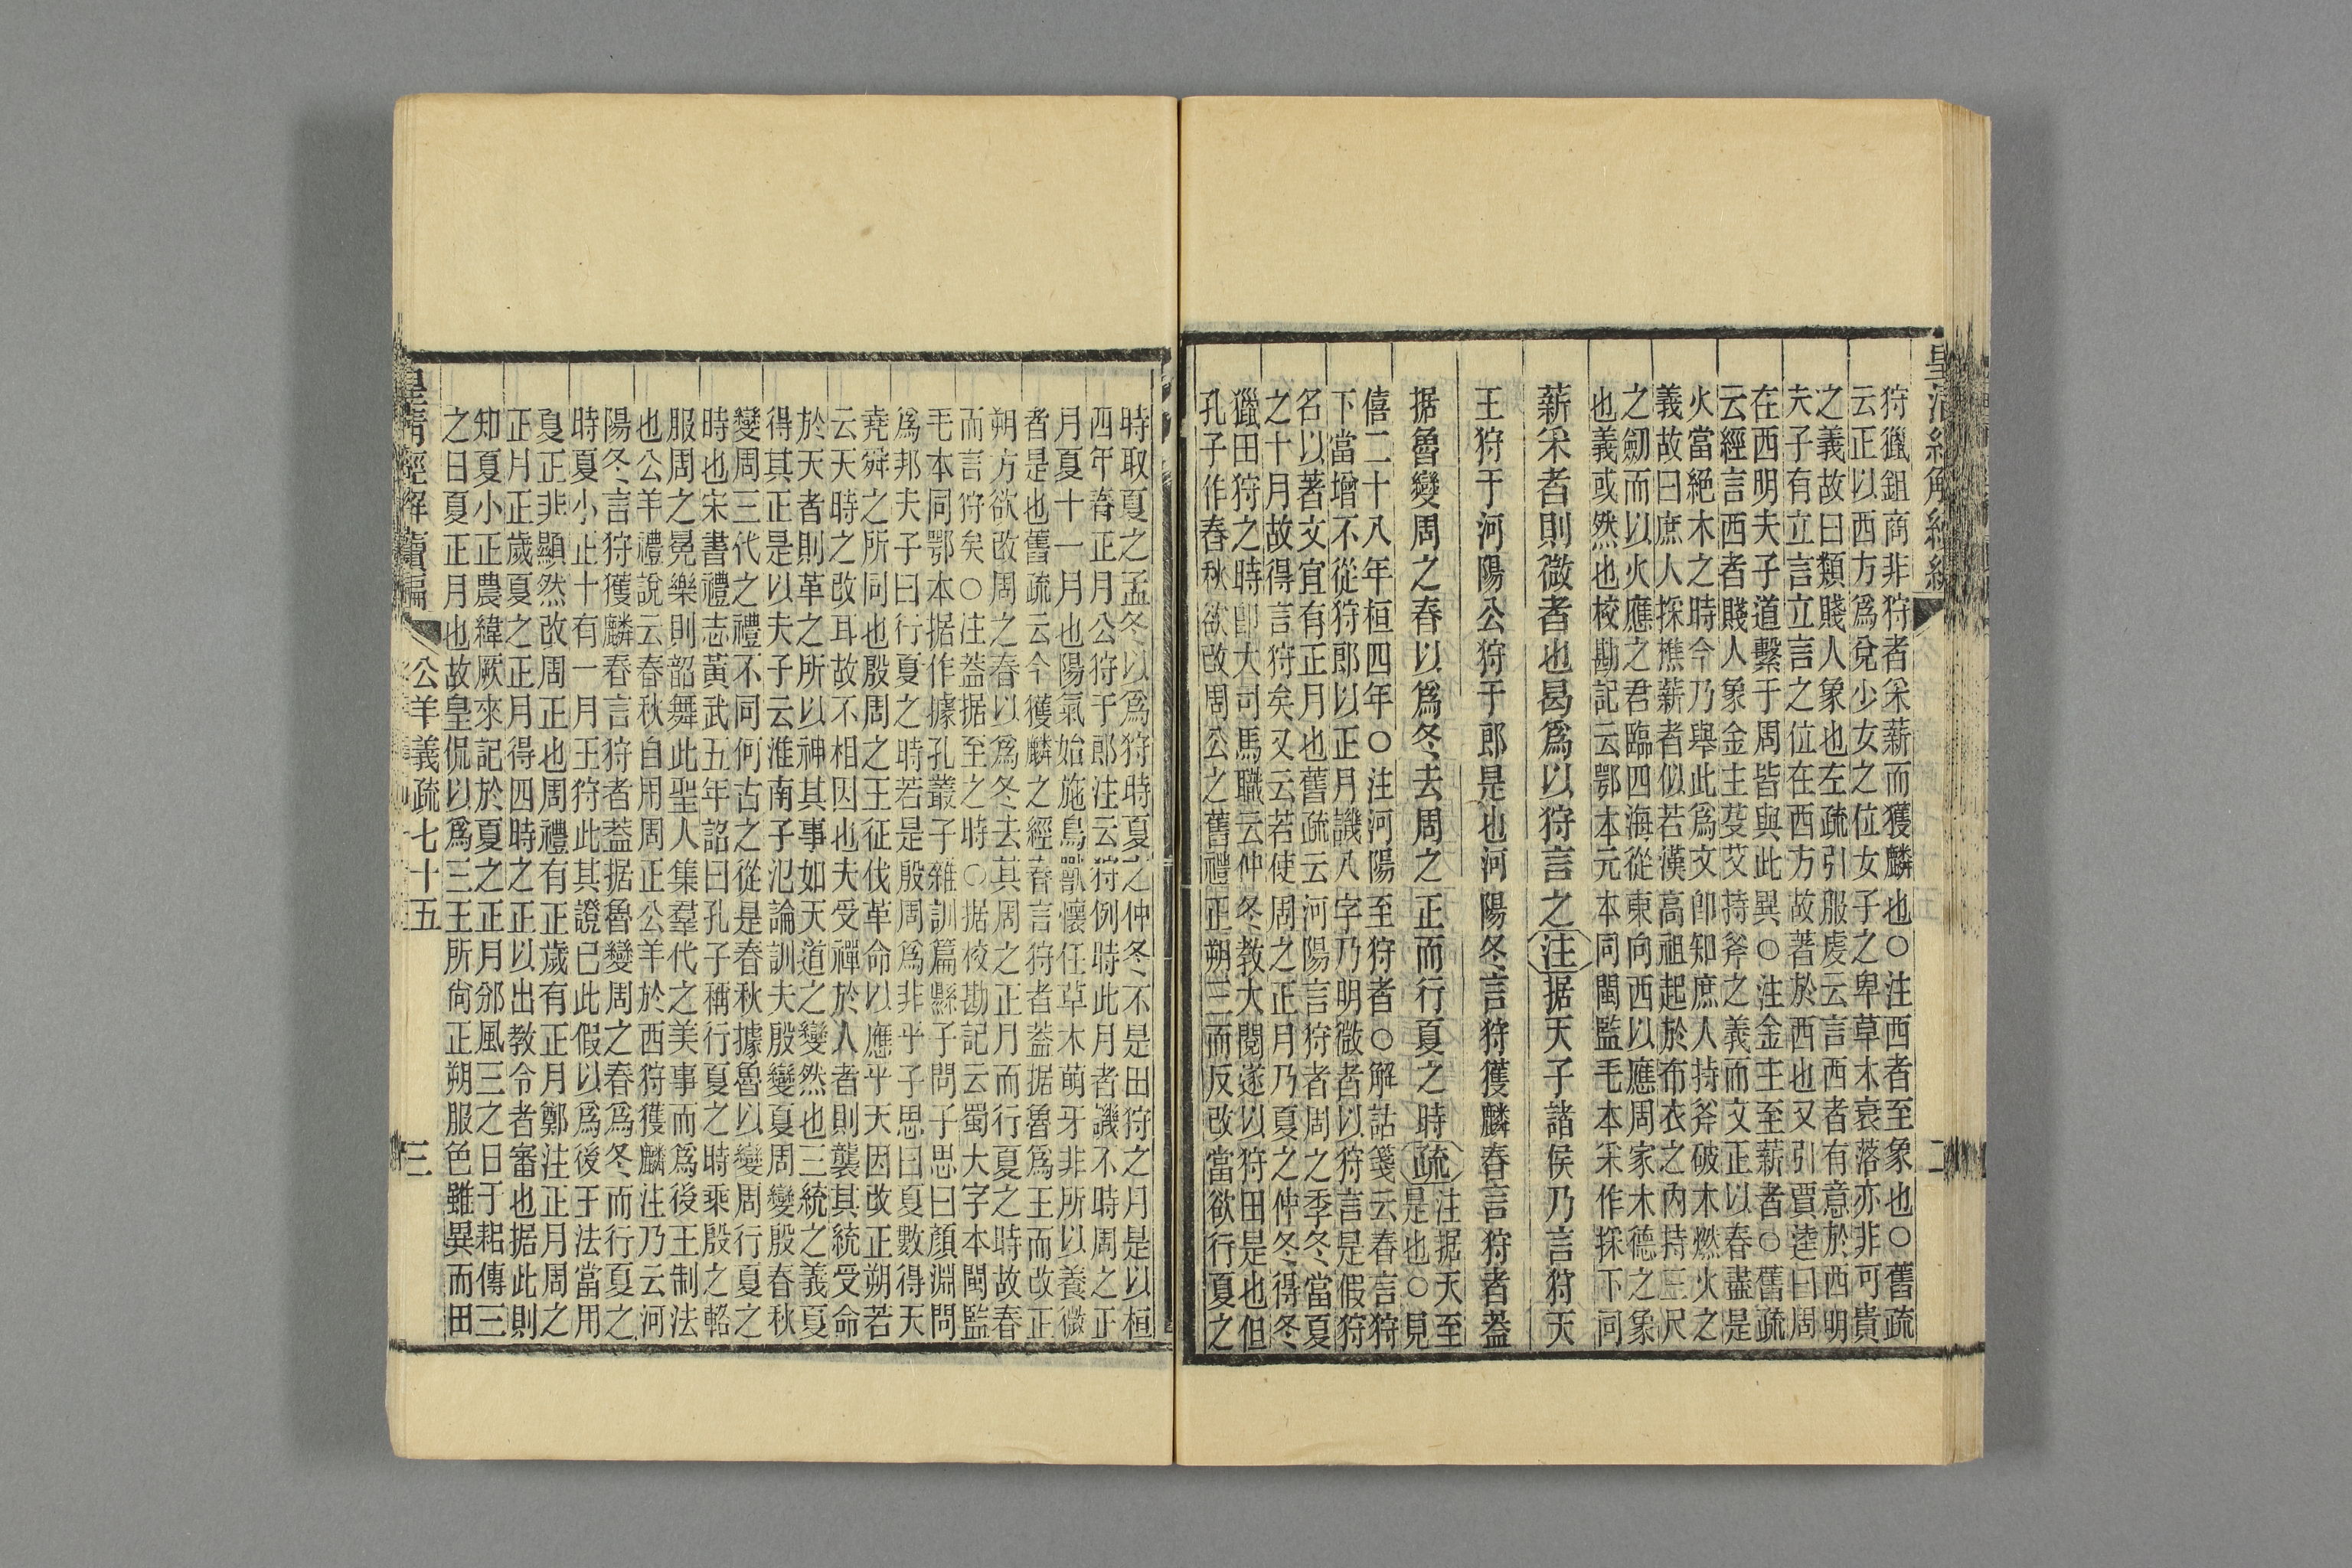 狩獵鉏商非狩者采薪而獲麟也○注西者至象也○舊疏
云正以西方爲兌少女之位女子之卑草木衰落亦非可貴
之義故曰類賤人象也左疏引服虔云言西者有意於西明
夫子有立言立言之位在西方故著於西也又引賈逵曰周
在西明夫子道繫于周皆與此異○注金主至薪者○舊疏
云經言西者賤人象金主芟艾持斧之義而文正以春盡是
火當絕木之時今乃舉此爲文卽知庶人持斧破木燃火之
義故曰庶人採樵薪者似若漢高祖起於布衣之內持三尺
之劒而以火應之君臨四海從東向西以應周家木德之象
也義或然也校勘記云鄂本元本同閩監毛本采作採下同
薪采者則微者也曷爲以狩言之注据天子諸侯乃言狩天
王狩于河陽公狩于郎是也河陽冬言狩獲麟春言狩者蓋
据魯變周之春以爲冬去周之正而行夏之時疏注据天至
是也○見
僖二十八年桓四年○注河陽至狩者○解詁箋云春言狩
下當增不從狩郎以正月譏八字乃明微者以狩言是假狩
名以著文宜有正月也舊疏云河陽言狩者周之季冬當夏
之十月故得言狩矣又云若使周之正月乃夏之仲冬得冬
獵田狩之時卽大司馬職云仲冬教大閱遂以狩田是也但
孔子作春秋欲改周公之舊禮正朔三而反改當欲行夏之
時取夏之孟冬以爲狩時夏之仲冬不是田狩之月是以桓
四年春正月公狩于郎注云狩例時此月者譏不時周之正
月夏十一月也陽氣始施鳥獸懷任草木萌牙非所以養微
者是也舊疏云今獲麟之經春言狩者蓋据魯爲王而改正
朔方欲改周之春以爲冬去其周之正月而行夏之時故春
而言狩矣○注蓋据至之時○据校勘記云蜀大字本閩監
毛本同鄂本据作據孔叢子雜訓篇縣子問子思曰顏淵問
爲邦夫子曰行夏之時若是殷周爲非乎子思曰夏數得天
堯舜之所同也殷周之王征伐革命以應乎天因改正朔若
云天時之改耳故不相因也夫受禪於人者則襲其統受命
於天者則革之所以神其事如天道之變然也三統之義夏
得其正是以夫子云淮南子氾論訓夫殷變夏周變殷春秋
變周三代之禮不同何古之從是春秋據魯以變周行夏之
時也宋書禮志黃武五年詔曰孔子稱行夏之時乘殷之輅
服周之冕樂則韶舞此聖人集羣代之美事而爲後王制法
也公羊禮說云春秋自用周正公羊於西狩獲麟注乃云河
陽冬言狩獲麟春言狩者蓋据魯變周之春爲冬而行夏之
時夏小正十有一月王狩此其證已此假以爲後王法當用
夏正非顯然改周正也周禮有正歲有正月鄭注正月周之
正月正歲夏之正月得四時之正以出教令者審也据此則
知夏小正農緯厥來記於夏之正月邠風三之日于耜傳三
之日夏正月也故皇侃以爲三王所尙正朔服色雖異而田
皇清經解續編
公羊義疏七十五
三